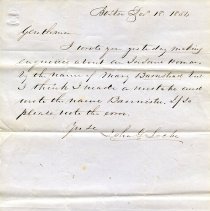 Boston Dec 18. 1886
Gentlemen
I wrote you yesterday making
enquiries about an Insane Woman
by the name of Mary Barnstead but
I think I made a mistake and
wrote the name Bannister. If so
please note the error.
Yrs &c
John G. Locke